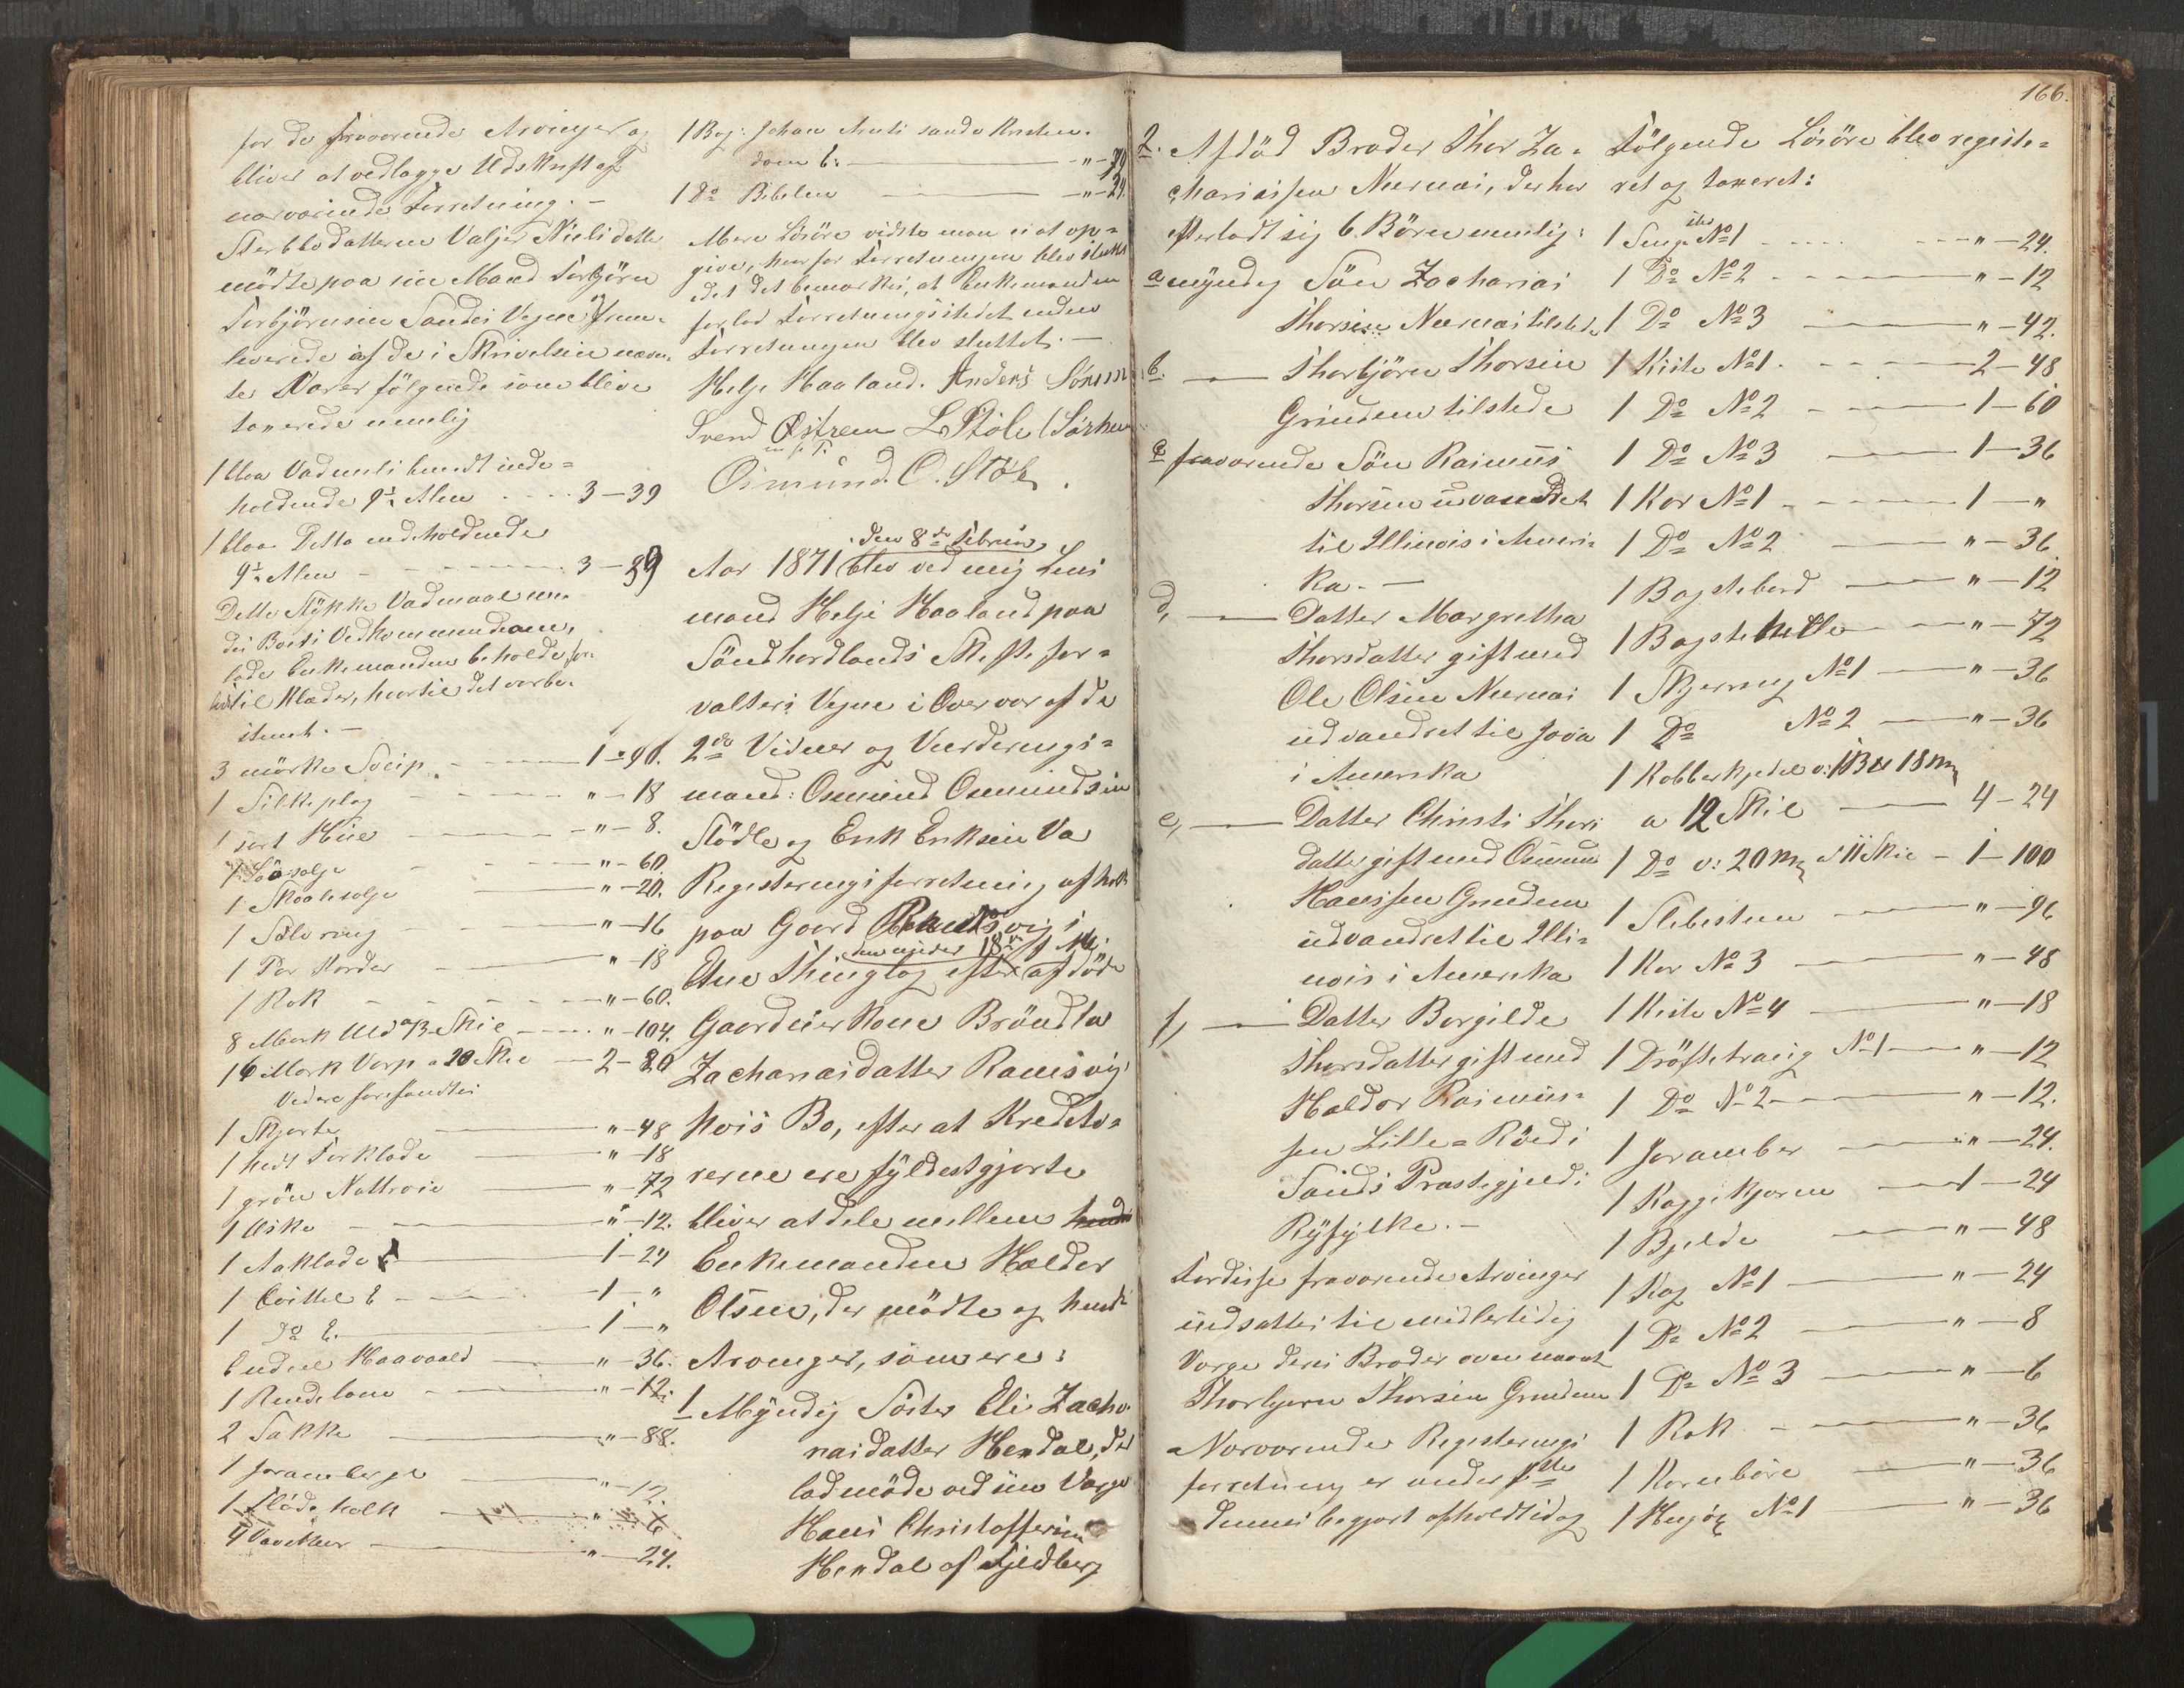 for de fraværende Arvinger og
bliver at vedlægge Udskrift af
nærværende Forretning. -
Sterbbodatteren Valjer Nielsdatter
mödte paa sin Mand Torbjörn
Torbjörnsen Sandes Vegne
leverede af de i Skrivelsen nævn-
te Varer fölgende som bleve
taxerede nemlig
1 blaa Vadmels inde-
holdende 9½ Alen - 3 - 39
1 blaa Ditto indeholdende
9½ Alen - 3 - 39
Dette Stykke Vadmaal
Boets Vedkommende
lode Enkemanden beholde
til Klæder, hvortil det var be-
stemt. -
3 mörke Sveip - 1 - 90.
1 Silkeplag " - 18
1 sort Hue - " - 8.
1 Sölvsolje " - 60.
1 Skaalesolje " - 20.
1 Sölvring " - 16
1 Par Korder " - 18
1 Rok " - 60.
8 Mark Uld a 13 Skil - " - 104.
16 Mark Varp a 20 Skil - 2 - 80
Videre forefandtes
1 Skjorte " - 48
1 hvidt Forklæde " - 18
1 grön Nattroie " - 72
1 Æske " - 12.
1 Aaklæde 1 - 24
1 Qvittel 1 - "
1 Do 1 - "
Endeel Haavaald " - 36.
1 Rendebom " - 12.
2 Sække " - 88.
1 " - 12.
1 Flödeholk " - 6
4 " - 24.
1 Bog: Johan Arnts sande Kristen-
dom - "
1 Do Bibelen - " - 24.
Mere Lösöre vidste man ei at op-
give, hvorfor Forretningen blev sluttet
idet det bemærkes, at Enkemanden
forlod Forretningsstedet inden
Forretningen blev sluttet. -
Helje Haaland. Anders Sörum
Svend Östrem L Stöle (Sörhu
m. p. P.
Osmund. O. Stöle.
den 8de Februar
Aar 1871 blev ved mig Lens
mand Helje Haaland paa
Söndhordlands Skifte for-
valters Vegne i Overvær af de
2de Vidner og Vurderings-
mænd: Osmund Osmundsen
Stödle og Erik Eriksen Va
Registreringsforretning afholdt
paa Gaard Ramsvig i
Etne Thinglag efter afdöde
Gaardmer Kone Bröndla
Zachariasdatter Ramsvig
hvis Bo, efter at Kredito-
rerne ere fyldestgjorte
bliver at dele mellem
Enkemanden Halder
Olsen, der mödte og hendes
Arvinger, som ere:
1 Myndig Söster Eli Zacha-
riasdatter Hendal, der
lod möde ved sin Værge
Hans Christoffersen
Hendal af Fjeldberg
166.
2. Afdöd Broder Thor Za-
chariassen Nernæs, der har
efterladt sig 6 Börn nemlig:
a myndig Sön Zacharias
Thorsen Nernæs tilstede
b. - Thorbjörn Thorsen
Grindem tilstede
c fraværende Sön Rasmus
Thorsen udvandret
til Illinois i Ameri-
ka. -
d, - Datter Margretha
Thorsdatter gift med
Ole Olsen Nernæs
udvandret til Jova
i Amerika
e, - Datter Christi Thors
datter gift med Osmun
Hansen Grindem
udvandret til Illi-
nois i Amerika
f, - Datter Borgilde
Thorsdatter gift med
Haldor Rasmus-
sen Lille-Röed i
Sands Præstegjeld i
Ryfylke. -
For disse fraværende Arvinger
indsattes til midlertidig
Værge deres Broder ovennævnt
Thorbjörn Thorsen Grindem
Nærværende Registrerings
forretning er under
dennes begjært afholdt idag
Fölgende Lösöre blev registe-
ret og taxeret:
1 Seng No 1 - " - 24.
1 Do No 2 - " - 12
1 Do No 3 " - 42.
1 Kiste No 1. 2 - 48
1 Do No 2 - 1 - 60
1 Do No 3 1 - 36
1 Kar No 1 - 1 - "
1 Do No 2 " - 36
1 Bagstebord " - 12
1 Bagstehelle " - 72
1 Skjerring No 1 " - 36
1 Do No 2 " - 36
1 Kobberkjedel v: 1 B 18 m
a 12 Skil 4 - 24
1 Do v: 20 m a 11 Skil - 1 - 100
1 Slibesteen " - 96
1 Kar No 3 " - 48
1 Kiste No 4 " - 18
1 Dröftetraug No 1 " - 12
1 Do No 2 " - 12.
1 " - 24.
1 Kaggekjærne 1 - 24
1 Bjelde " - 48
1 Kag No 1 " - 24
1 Do No 2 " - 8
1 Do No 3 " - 6
1 Rok - " - 36
1 Kornböre " - 36
1 No 1 " - 36